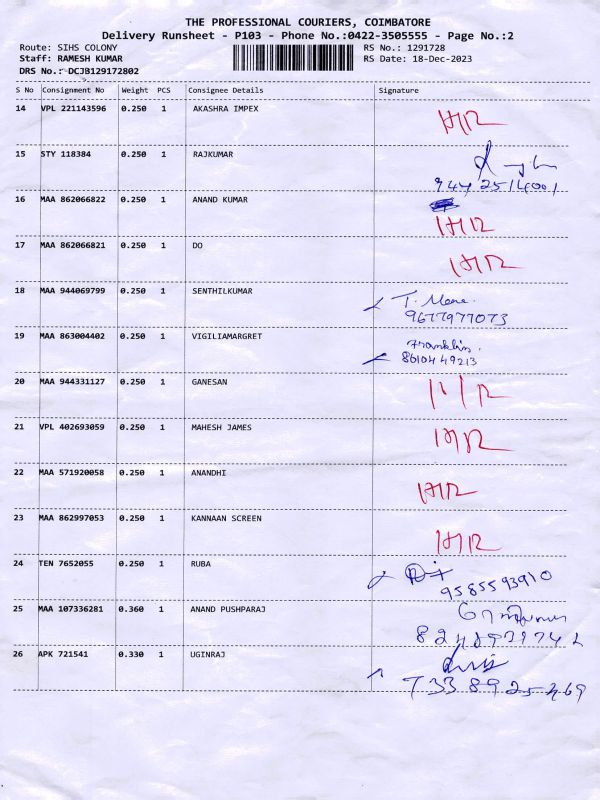 THE PROFESSIONAL COURIERS, COIMBATORE
Delivery Runsheet - P103 - Phone No.:0422-3505555 - Page No.:2
Route: SIHS COLONY RS No.: 1291728
Staff: RAMESH KUMAR RS Date: 18-Dec-2023
DRS No.: DCJB129172802
S No Consignment No Weight PCS Consignee Details Signature
14 VPL 221143596 0.250 1 AKASHRA IMPEX
15 STY 118384 0.250 1 RAJKUMAR
9442514001
16 MAA 862066822 0.250 1 ANAND KUMAR
17 MAA 862066821 0.250 1 DO
18 MAA 944069799 0.250 1 SENTHILKUMAR T.
9677977073
19 MAA 863004402 0.250 1 VIGILIAMARGRET Franklin.
8610449213
20 MAA 944331127 0.250 1 GANESAN
21 VPL 402693059 0.250 1 MAHESH JAMES
22 MAA 571920058 0.250 1 ANANDHI
23 MAA 862997053 0.250 1 KANNAAN SCREEN
24 TEN 7652055 0.250 1 RUBA
9585593910
25 MAA 107336281 0.360 1 ANAND PUSHPARAJ
26 APK 721541 0.330 1 UGINRAJ